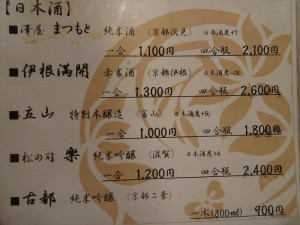 【日本酒】
■澤屋 まつもと 純米酒 〈京都伏見〉 日本酒度+7
一合 1,100円 四合瓶 2,100円
■伊根満開 赤米酒 〈京都伊根〉 日本酒度
一合 1,300円 四合瓶 2,600円
■立山 特別本醸造 〈富山〉 日本酒度+5
一合 1,000円 四合瓶 1,800円
■松の司 楽 純米吟醸 〈滋賀〉 日本酒度
一合 1,200円 四合瓶 2,400円
■古都 純米吟醸 〈京都二条〉
一本(300ml) 900円